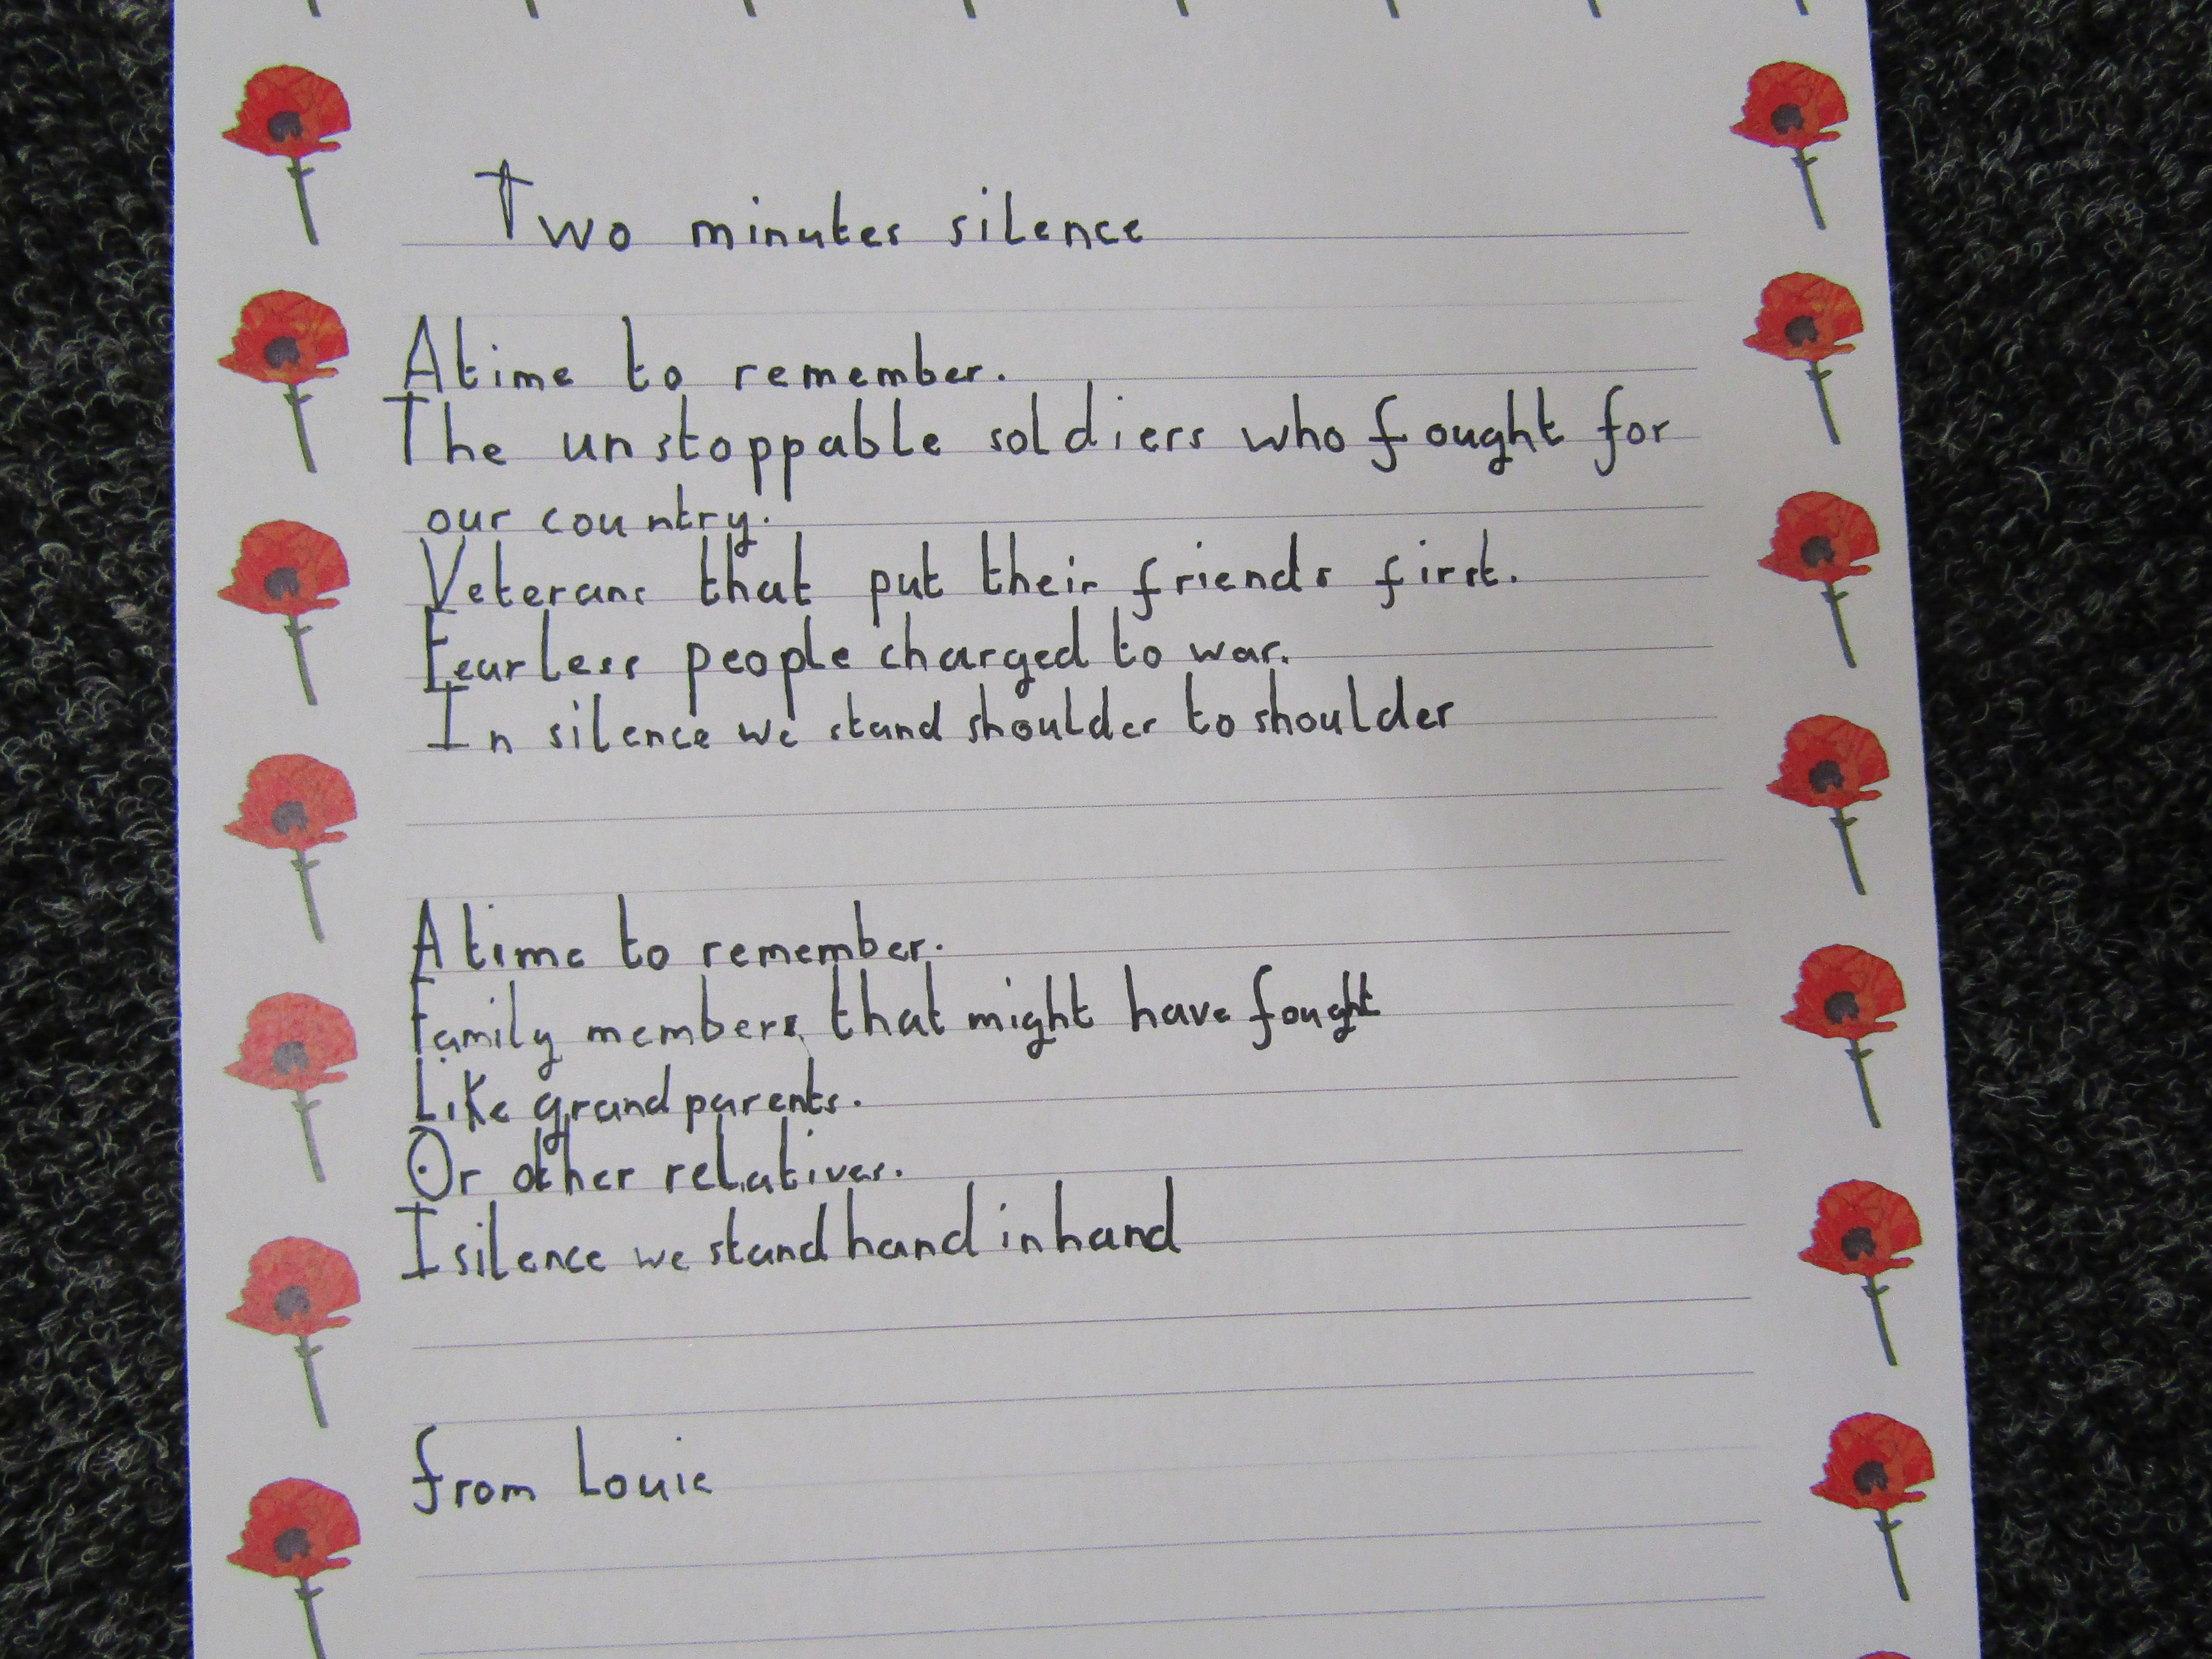 Two minutes silence
A time to remember.
The unstoppable soldiers who fought for
our country.
Veterans that put their friends first.
Fearless people charged to war.
In silence we stand shoulder to shoulder
A time to remember.
Family members that might have fought
Like grandparents.
Or other relatives.
I silence we stand hand in hand
from Louie